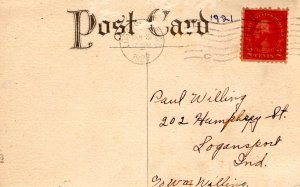 Post Card
1921
Paul Willing
202 Humphrey St.
Logansport
Ind.
c/o Wm Willing